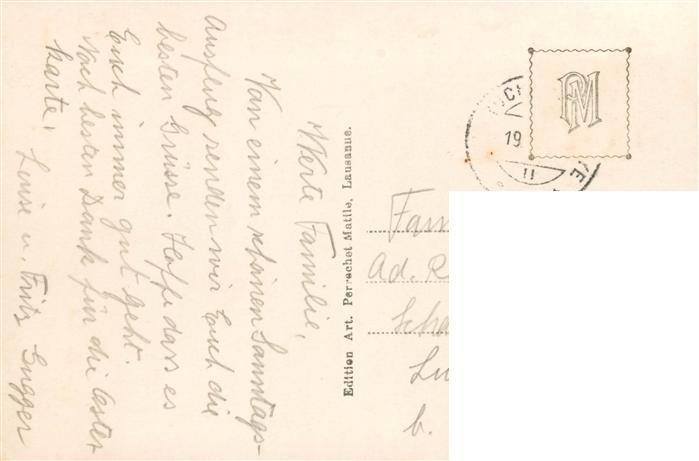 Werte Familie,
Von einem schönen Samstags-
Ausflug senden wir Euch die
besten Grüsse. Hoffe dass es
Euch immer gut geht.
Noch besten Dank für die
karte.
Luise u. Fritz Gugger
Edition Art. Perrochet Matile, Lausanne.
PM
19
II
Fam
Ad. R
Scha
Lu
b.